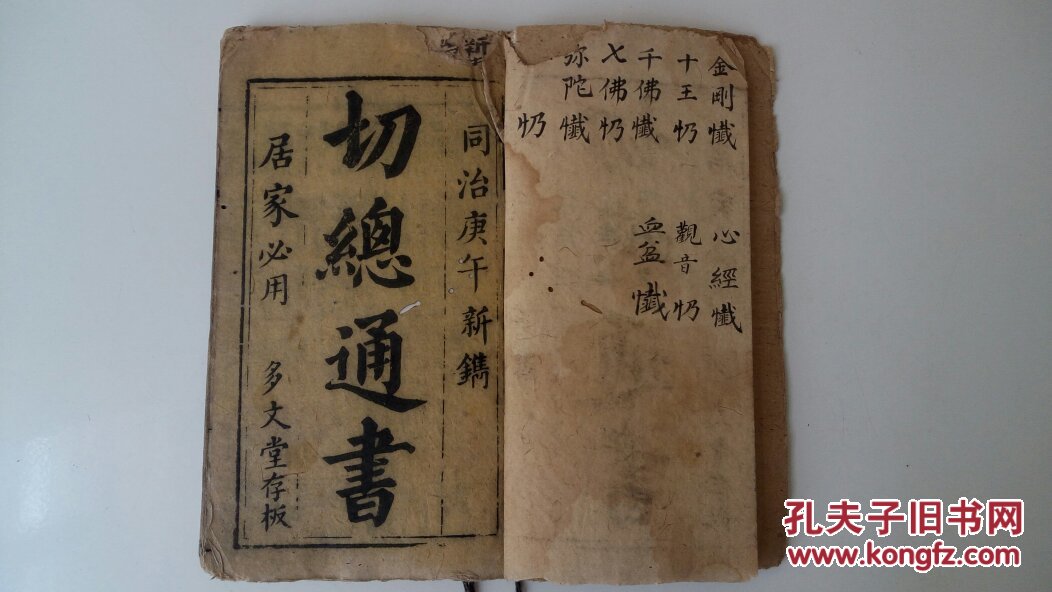 金剛懺
心經懺
十王忉
觀音忉
千佛懺
血盆懺
七佛忉
弥陀懺
忉
新
同治庚午新鐫
切總通書
居家必用
多文堂存板
孔夫子旧书网
www.kongfz.com